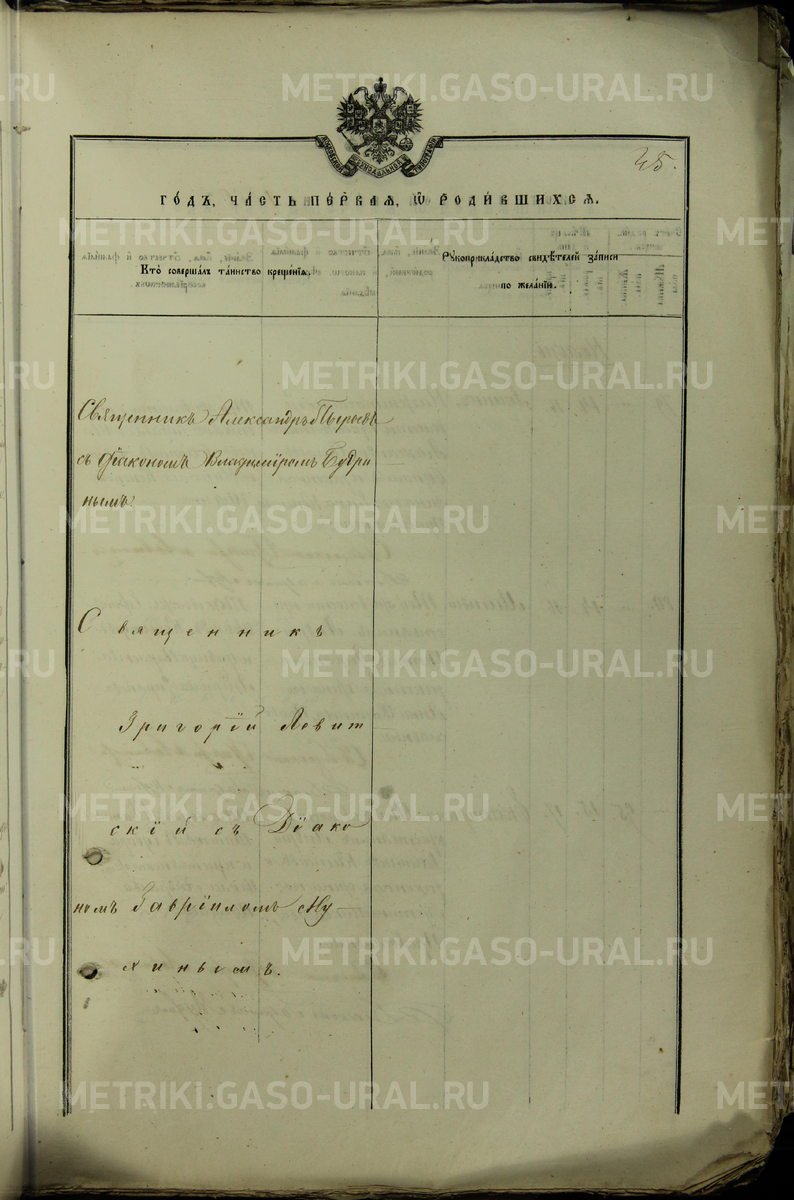 METRIKI.GASO-URAL.RU
25.
го́дъ, ча́сть пе́рваѧ, ѡ҆ роди́вшихсѧ.
Кто̀ соверша́лъ та́инство креще́нїѧ.
Рꙋкоприкла́дство свидѣ́телей за́писи
по жела́нїю.
Священникъ Александръ
съ Діакономъ Владиміромъ Будри
нымъ.
Священникъ
Григорій Левит
скій съ Діако
номъ Гавріиломъ Му
хинымъ.